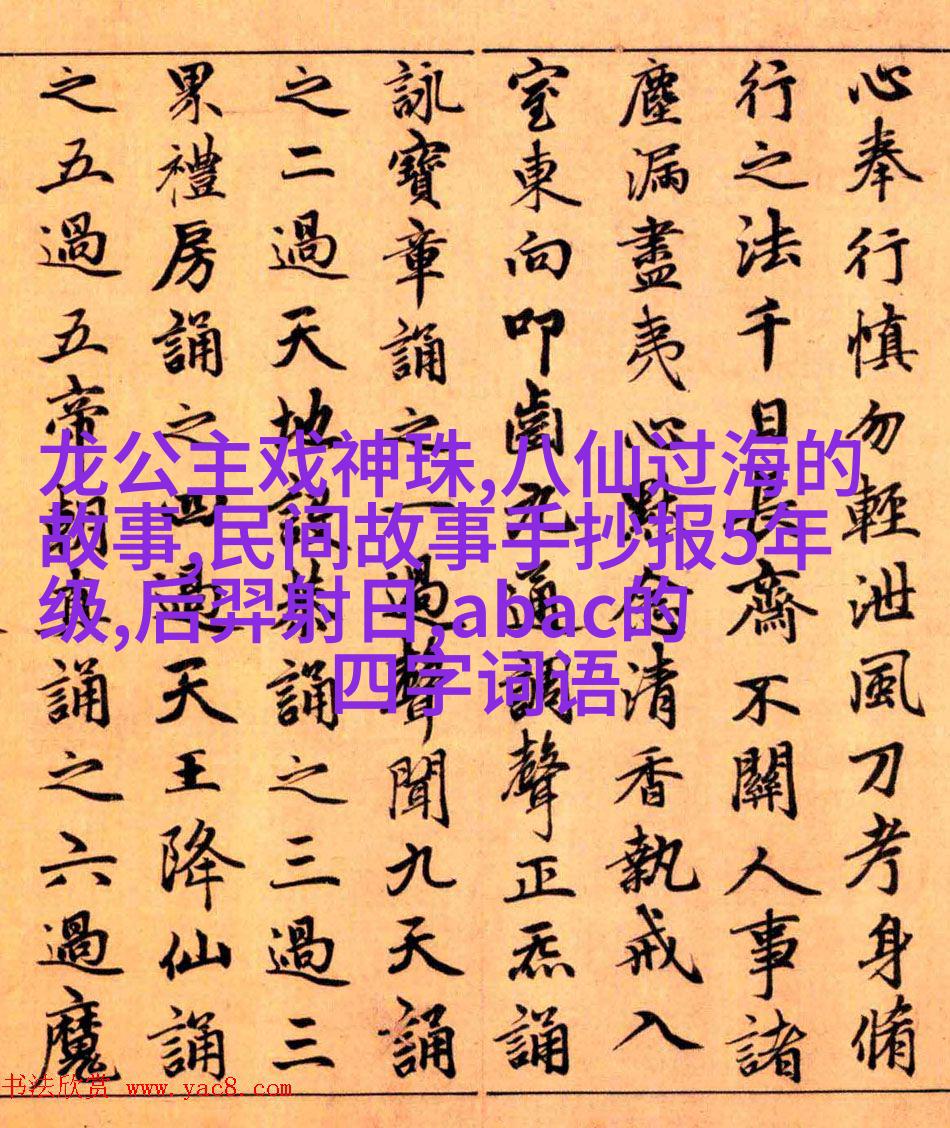 心奉行慎勿輕泄風刀考身脩
行之法千日長齋不關人事諸
塵漏盡夷心默念清香執戒入
室東向叩齒九通調聲正炁誦
詠寶章誦之一過聲聞九天誦
之二過天地設恭誦之三過三
界禮房誦之四過天王降仙誦
之五過五帝朝真誦之六過魔
龙公主戏神珠,八仙过海的
故事,民间故事手抄报5年
级,后羿射日,abac的
四字词语
书法欣赏 www.yac8.com